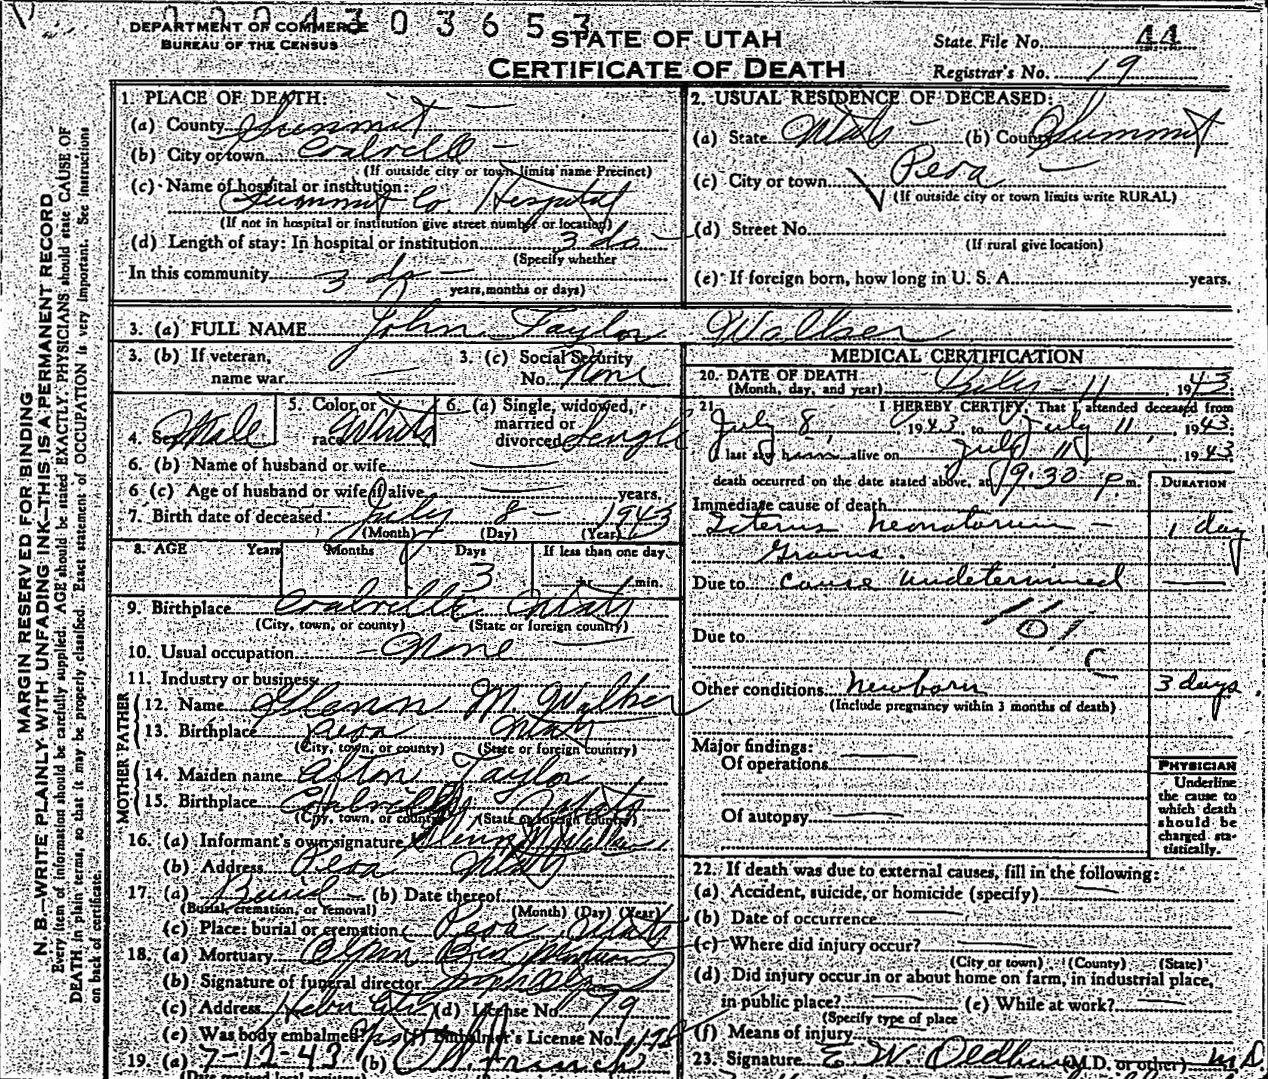 0 0 0 4 3 0 3 6 5 3
DEPARTMENT OF COMMERCE
BUREAU OF THE CENSUS
STATE OF UTAH
CERTIFICATE OF DEATH
State File No. 44
Registrar's No. 19
MARGIN RESERVED FOR BINDING
N. B.—WRITE PLAINLY WITH UNFADING INK—THIS IS A PERMANENT RECORD
Every item of information should be carefully supplied. AGE should be stated EXACTLY. PHYSICIANS should state CAUSE OF
DEATH in plain terms, so that it may be properly classified. Exact statement of OCCUPATION is very important. See instructions
on back of certificate.
1. PLACE OF DEATH:
(a) County Summit
(b) City or town Coalville
(If outside city or town limits name Precinct)
(c) Name of hospital or institution:
Summit Co. Hospital
(If not in hospital or institution give street number or location)
(d) Length of stay: In hospital or institution 3 da
(Specify whether
In this community 3 da
years, months or days)
2. USUAL RESIDENCE OF DECEASED:
(a) State Utah (b) County Summit
(c) City or town Peoa
(If outside city or town limits write RURAL)
(d) Street No.
(If rural give location)
(e) If foreign born, how long in U. S. A. years.
3. (a) FULL NAME John Taylor Walker
3. (b) If veteran,
name war
3. (c) Social Security
No. None
4. Sex Male
5. Color or
race White
6. (a) Single, widowed,
married or
divorced Single
6. (b) Name of husband or wife
6 (c) Age of husband or wife if alive years.
7. Birth date of deceased July 8 1943
(Month) (Day) (Year)
8. AGE Years Months Days If less than one day
3 hr. min.
9. Birthplace Coalville Utah
(City, town, or county) (State or foreign country)
10. Usual occupation None
11. Industry or business
FATHER
12. Name M. Walker
13. Birthplace Peoa Utah
(City, town, or county) (State or foreign country)
MOTHER
14. Maiden name Afton Taylor
15. Birthplace Coalville Utah
(City, town, or county) (State or foreign country)
16. (a) Informant's own signature M Walker
(b) Address Peoa Utah
17. (a) Burial (b) Date thereof
(Burial, cremation, or removal) (Month) (Day) (Year)
(c) Place: burial or cremation Peoa Utah
18. (a) Mortuary Olpin Bros Mortuary
(b) Signature of funeral director
(c) Address Heber City (d) License No. 79
(e) Was body embalmed? (f) Embalmer's License No. 178
19. (a) 7-12-43 (b)
(Date received local registrar)
MEDICAL CERTIFICATION
20. DATE OF DEATH
(Month, day, and year) July 11, 1943.
21. I HEREBY CERTIFY, That I attended deceased from
July 8, 1943 to July 11, 1943
I last saw him alive on July 11 1943
death occurred on the date stated above, at 9:30 p m.
DURATION
Immediate cause of death
Icterus Neonatorum 1 day
Gravus.
Due to cause undetermined
161
Due to
c
Other conditions Newborn 3 days
(Include pregnancy within 3 months of death)
Major findings:
Of operations
Of autopsy
PHYSICIAN
Underline
the cause to
which death
should be
charged sta-
tistically.
22. If death was due to external causes, fill in the following:
(a) Accident, suicide, or homicide (specify)
(b) Date of occurrence
(c) Where did injury occur?
(City or town) (County) (State)
(d) Did injury occur in or about home on farm, in industrial place,
in public place? (e) While at work?
(Specify type of place
(f) Means of injury
23. Signature E W Oldham (M.D. or other) MD